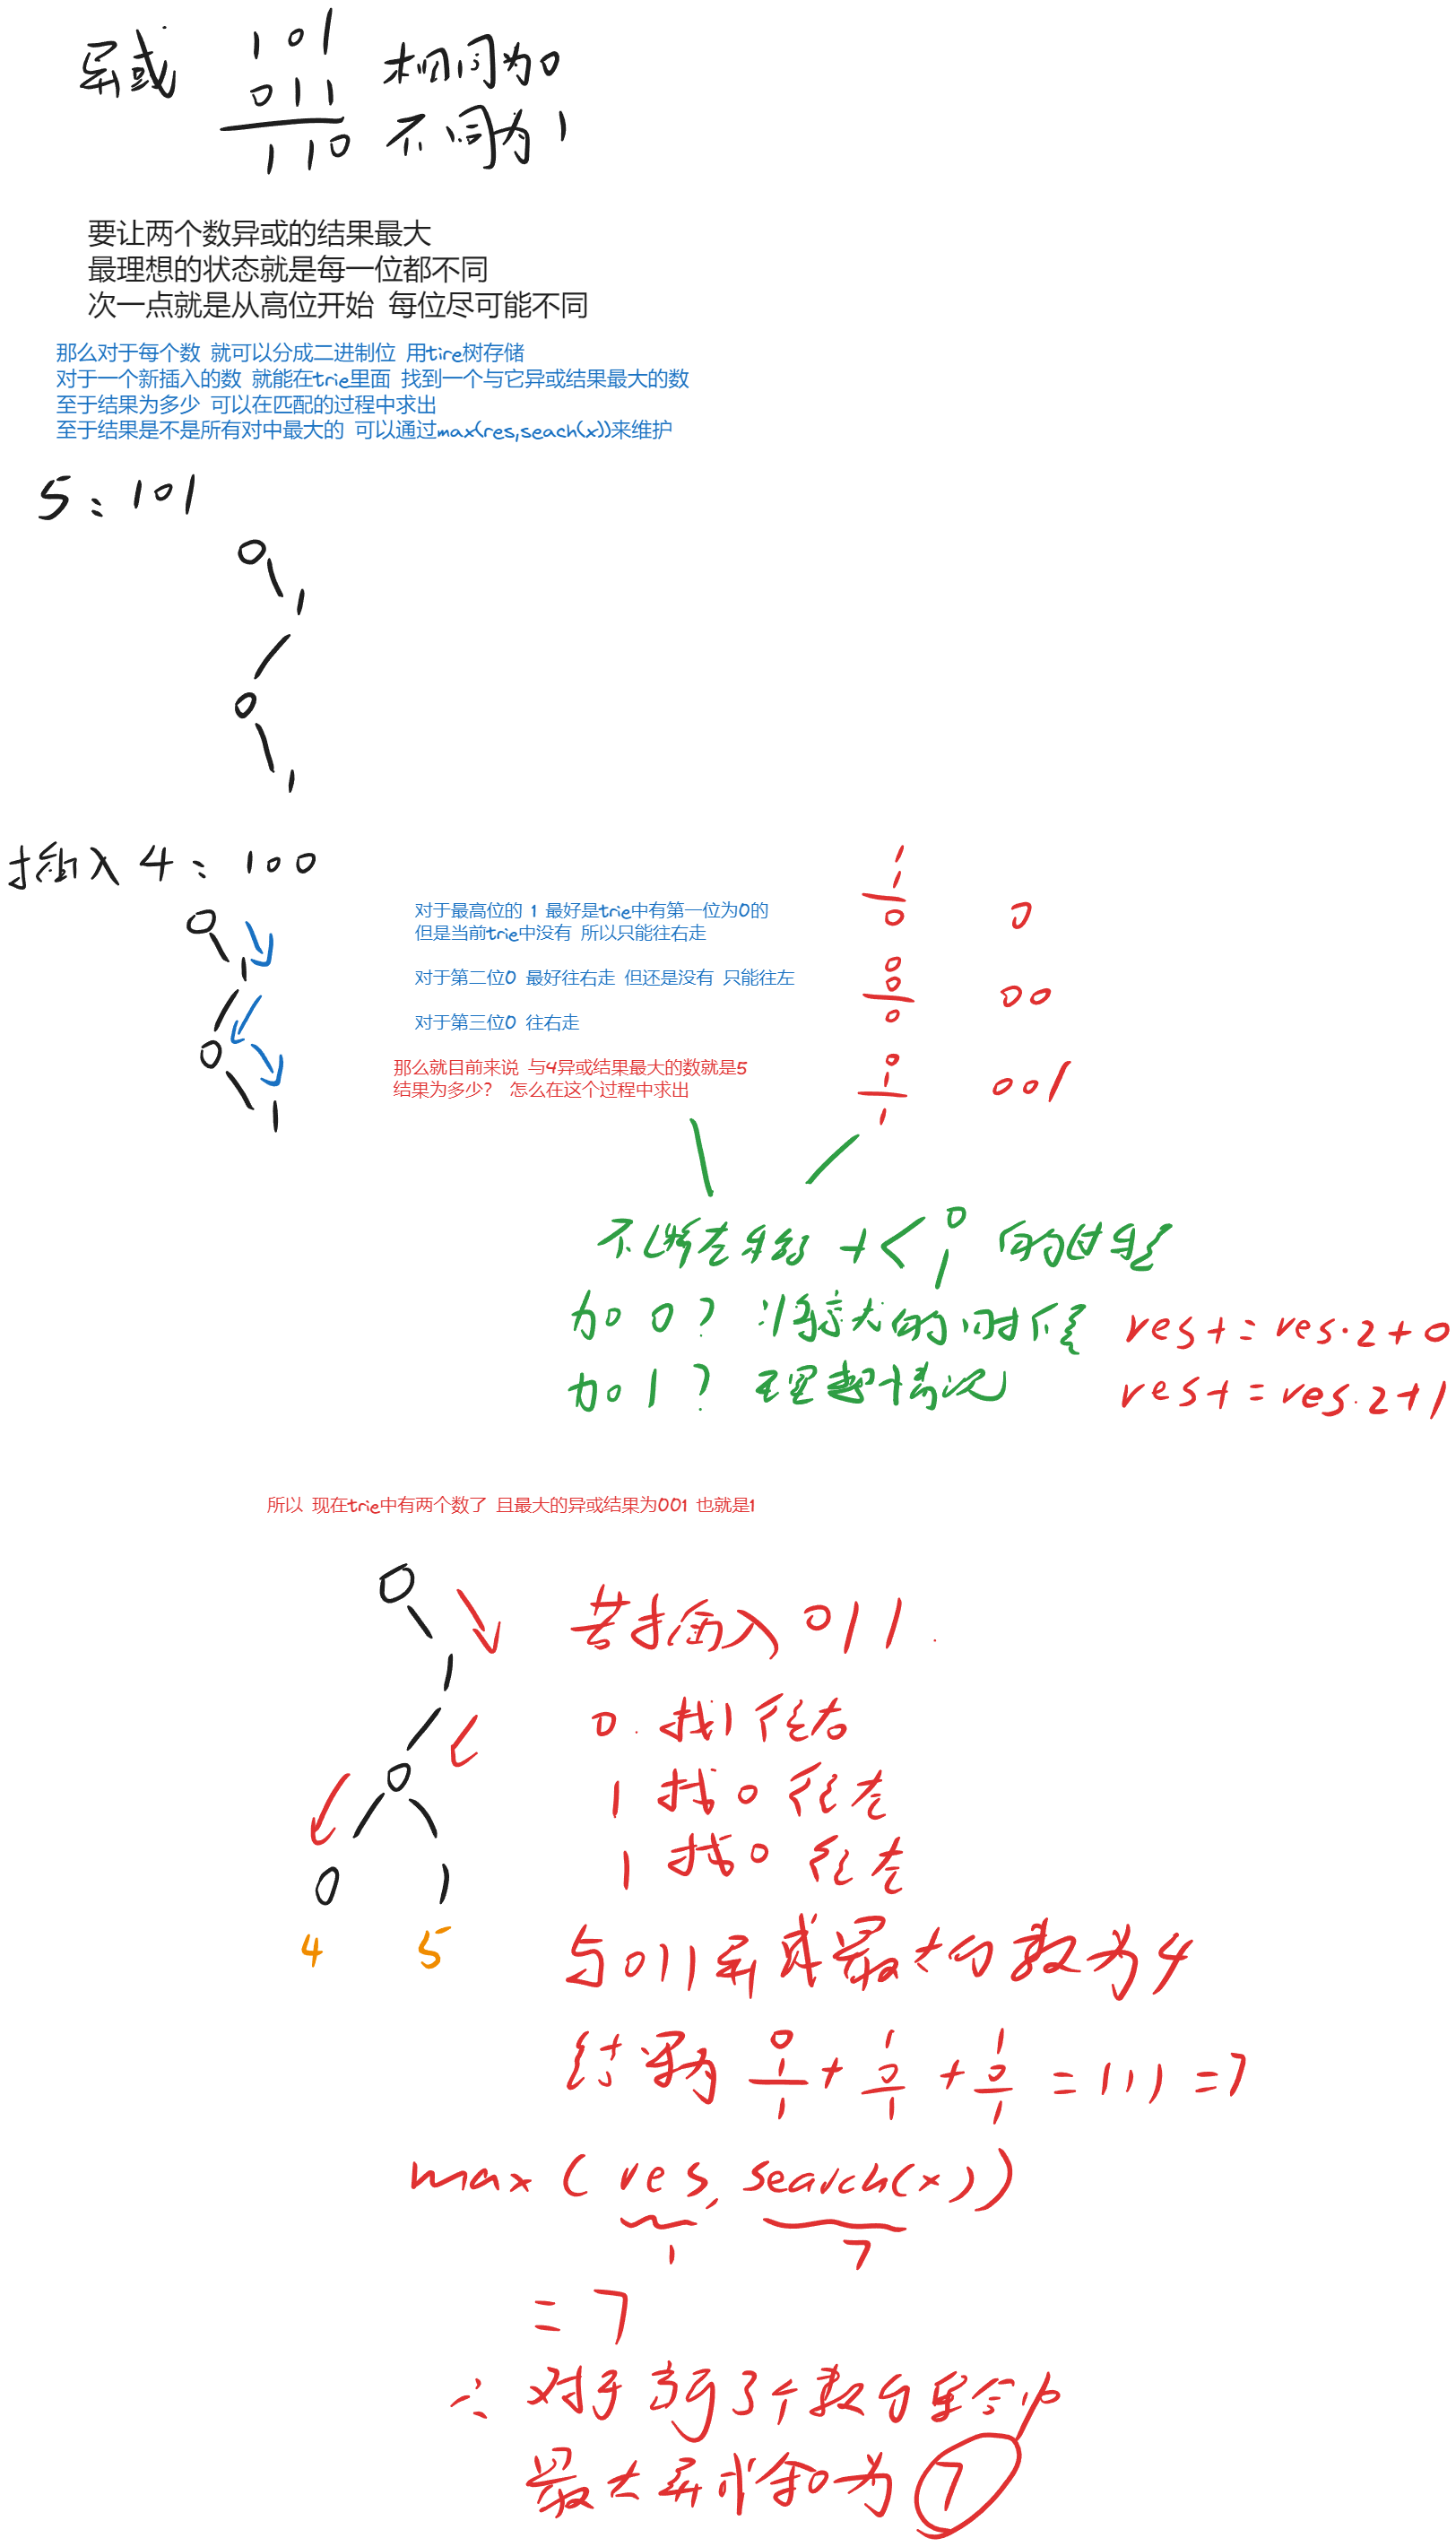 异或 101 相同为0
011
110 不同为1
要让两个数异或的结果最大
最理想的状态就是每一位都不同
次一点就是从高位开始 每位尽可能不同
那么对于每个数 就可以分成二进制位 用tire树存储
对于一个新插入的数 就能在trie里面 找到一个与它异或结果最大的数
至于结果为多少 可以在匹配的过程中求出
至于结果是不是所有对中最大的 可以通过max(res,seach(x))来维护
5:101
0
1
0
1
插入4:100
0
1
0
1
对于最高位的 1 最好是trie中有第一位为0的
但是当前trie中没有 所以只能往右走
对于第二位0 最好往右走 但还是没有 只能往左
对于第三位0 往右走
那么就目前来说 与4异或结果最大的数就是5
结果为多少? 怎么在这个过程中求出
1
1
0 0
0
0
0 00
0
1
1 001
不断左移 + < 0 1 的过程
加0? 将就的时候 res+=res·2+0
加1? 理想情况 res+=res·2+1
所以 现在trie中有两个数了 且最大的异或结果为001 也就是1
0
1
0
0 1
4 5
若插入011.
0.找1往右
1找0往左
1找0往左
与011异或最大的数为4
结果为 0 1 1 + 1 0 1 + 1 0 1 =111=7
max(res,search(x))
1 7
=7
∴对于 3个数的集合中
最大异或和为7